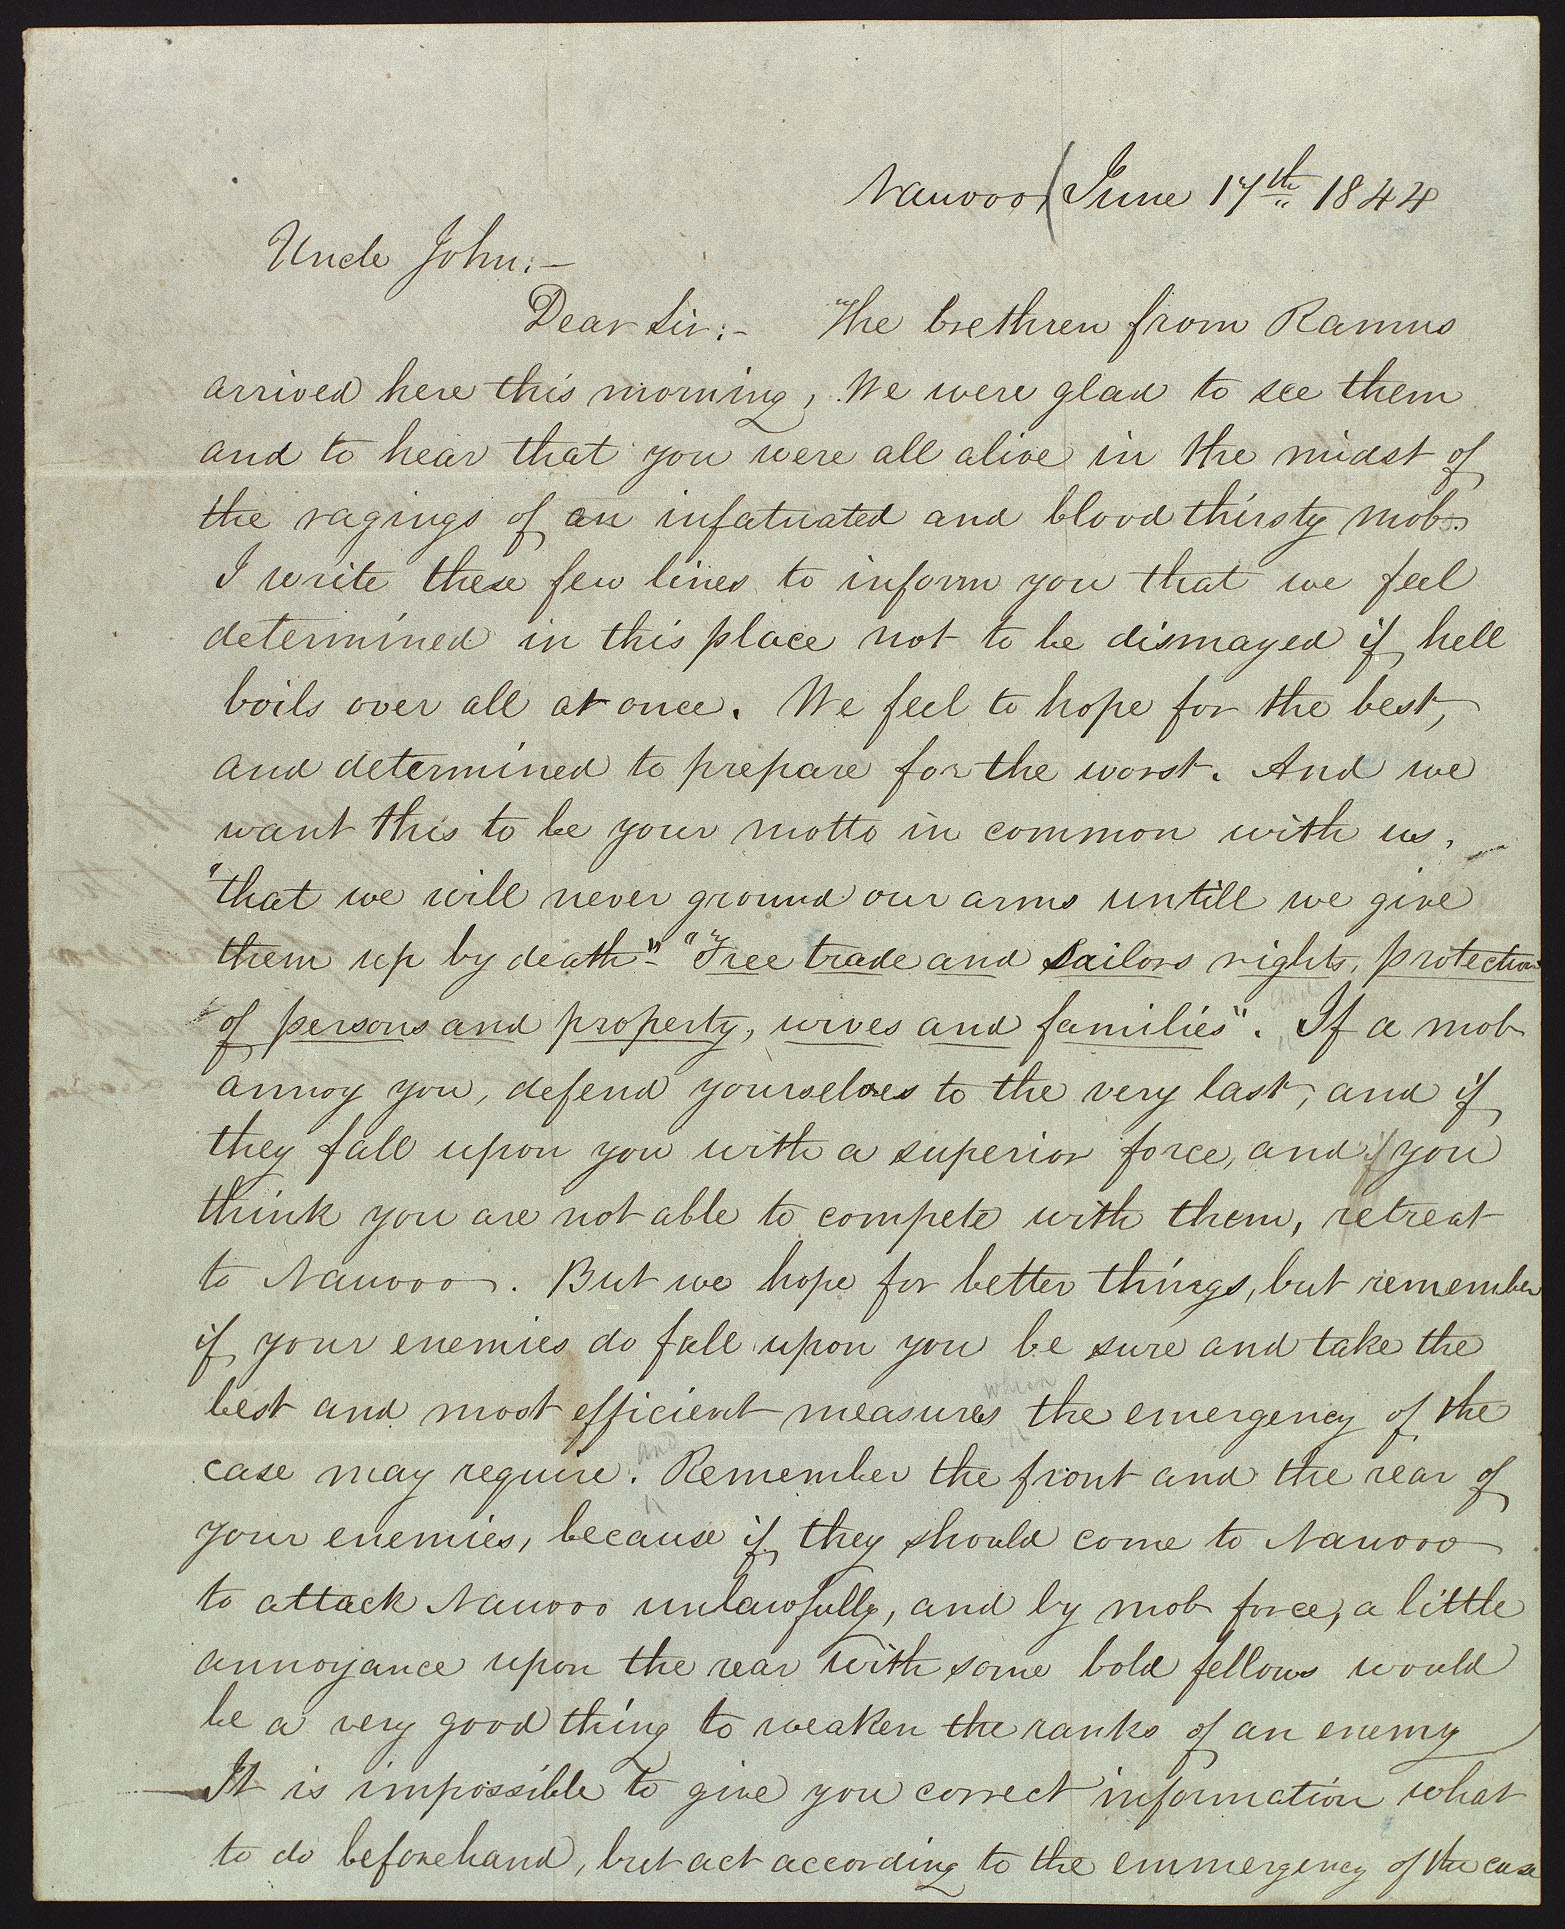 Nauvoo, June 17th 1844
Uncle John:-
Dear Sir:- The brethren from Ramus
arrived here this morning, We were glad to see them
and to hear that you were all alive in the midst of
the ragings of an infatuated and blood thirsty mob.
I write these few lines to inform you that we feel
determined in this place not to be dismayed if hell
boils over all at once. We feel to hope for the best,
and determined to prepare for the worst. And we
want this to be your motto in common with us,
"that we will never ground our arms untill we give
them up by death"- "Free trade and Sailors rights, protection
of persons and property, wives and families". If a mob
and
annoy you, defend yourselves to the very last, and if
they fall upon you with a superior force, and if you
think you are not able to compete with them, retreat
to Nauvoo. But we hope for better things, but remember
if your enemies do fall upon you be sure and take the
when
best and most efficient measures the emergency of the
and
case may require. Remember the front and the rear of
your enemies, because if they should come to Nauvoo
to attack Nauvoo unlawfully, and by mob force, a little
annoyance upon the rear with some bold fellows would
be a very good thing to weaken the ranks of an enemy
It is impossible to give you correct information what
to do beforehand, but act according to the emmergency of the case